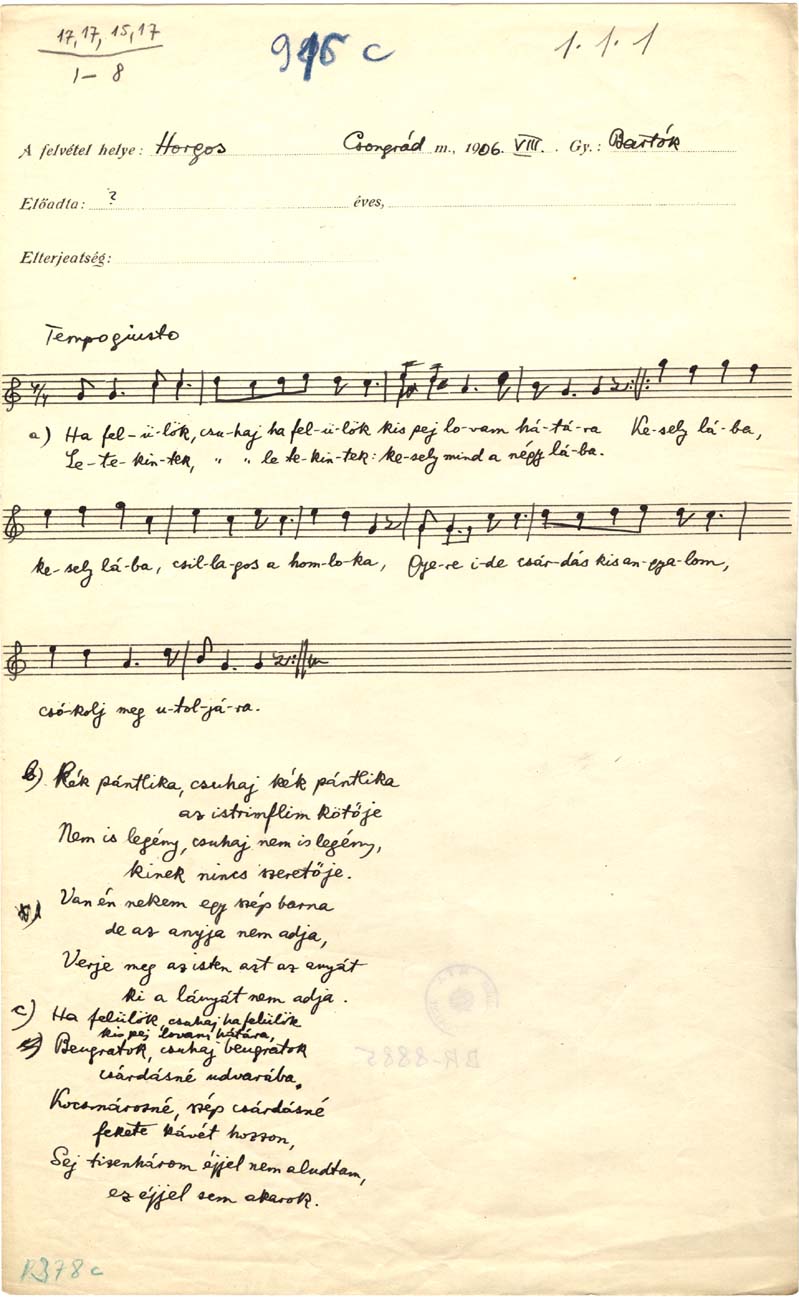 17, 17, 15, 17
1– 8
c
1. 1. 1
A felvétel helye: Horgos Csongrád m., 1906. VIII. Gy.: Bartók
Előadta: ? éves,
Elterjeatség:
Tempogiusto
a) Ha fel-ü-lök, csu-haj ha fel-ü-lök kis pej lo-vam há-tá-ra Ke-sely lá-ba,
Le-te-kin-tek, „ „ le te-kin-tek: ke-sely mind a négy lá-ba.
ke-sely lá-ba, csil-la-gos a hom-lo-ka, Gye-re i-de csár-dás kis an-gya-lom,
csó-kolj meg u-tol-já-ra.
b) Kék pántlika, csuhaj kék pántlika
az istrimflim kötője
Nem is legény, csuhaj nem is legény,
kinek nincs szeretője.
Van én nekem egy szép barna
de az anyja nem adja,
Verje meg az isten azt az anyát
ki a lányát nem adja.
c) Ha felülök, csuhaj ha felülök
kis pej lovam hátára,
Beugratok, csuhaj beugratok
csárdásné udvarába.
Kocsmárosné, szép csárdásné
fekete kávét hozzon,
Sej tizenhárom éjjel nem aludtam,
ez éjjel sem akarok.
BR-8885